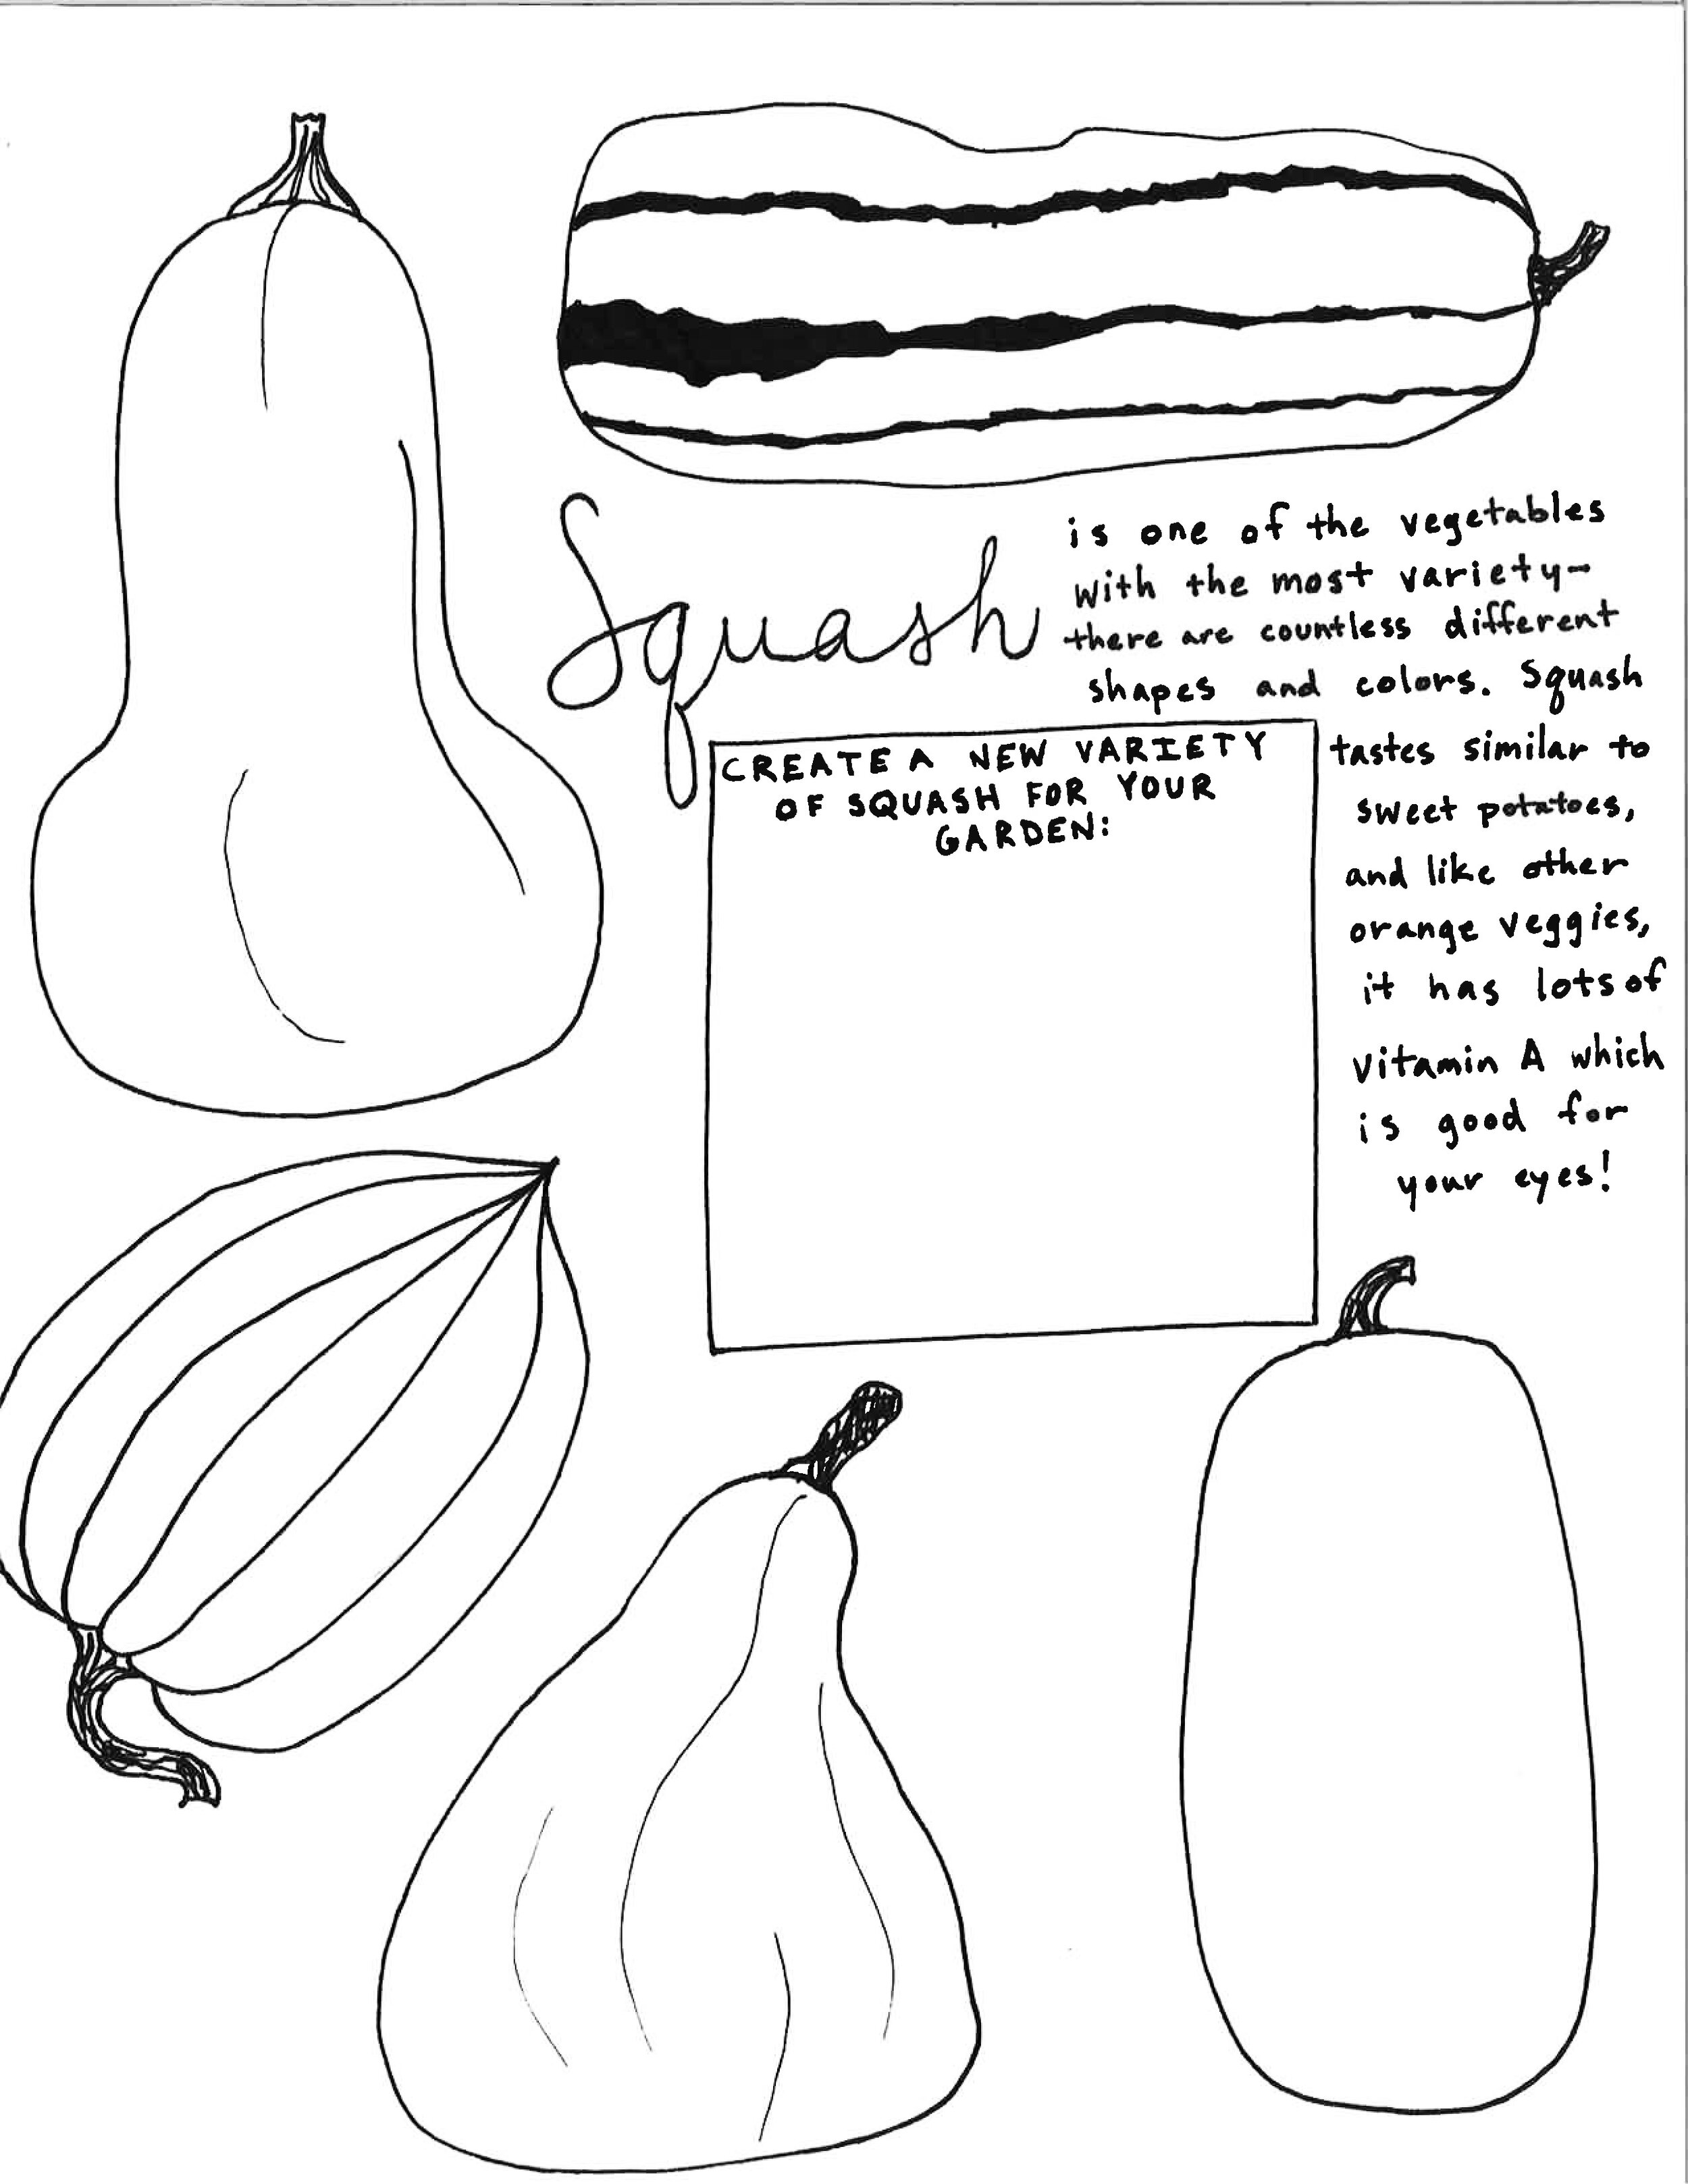 Squash
is one of the vegetables
with the most variety-
there are countless different
shapes and colors. Squash
tastes similar to
sweet potatoes,
and like other
orange veggies,
it has lots of
vitamin A which
is good for
your eyes!
CREATE A NEW VARIETY
OF SQUASH FOR YOUR
GARDEN: